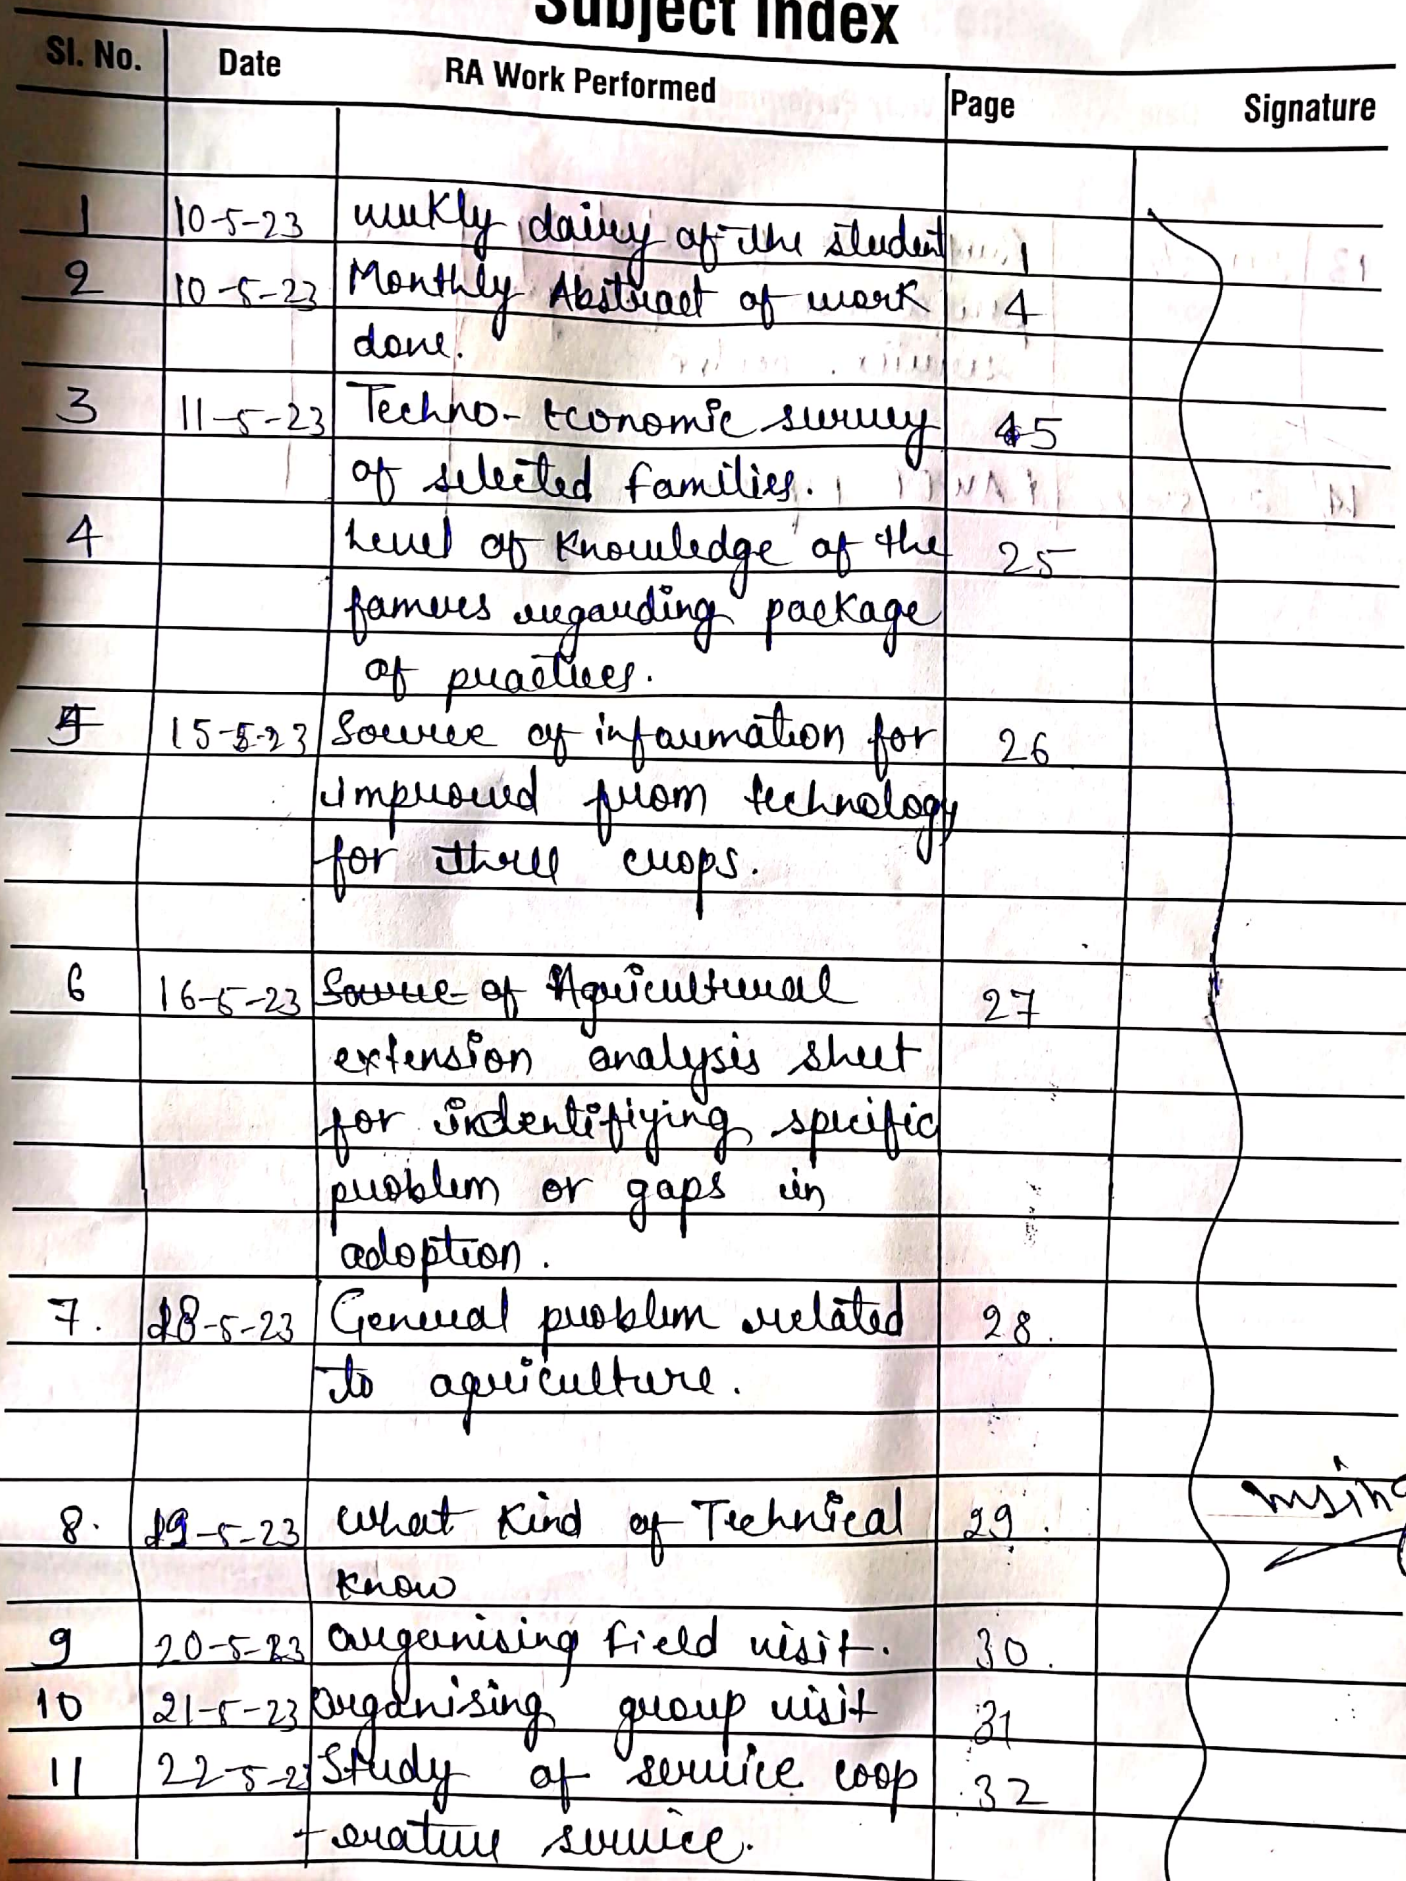 Subject Index
Sl. No. Date RA Work Performed Page Signature
1 10-5-23 weekly dairy of the student 1
2 10-5-23 Monthly Abstract of work 4
done.
3 11-5-23 Techno-Economic survey 45
of selected families.
4 Level of Knowledge of the 25
famers regarding package
of practices.
5 15-5-23 Source of information for 26
improved from technology
for three crops.
6 16-5-23 Source of Agricultural 27
extension analysis sheet
for indentifiying specific
problem or gaps in
adoption.
7. 18-5-23 General problem related 28.
to agriculture.
8. 19-5-23 what Kind of Technical 29.
Know
9 20-5-23 organising field visit. 30.
10 21-5-23 organising group visit 31
11 22-5-2 Study of service coop 32
erative service.